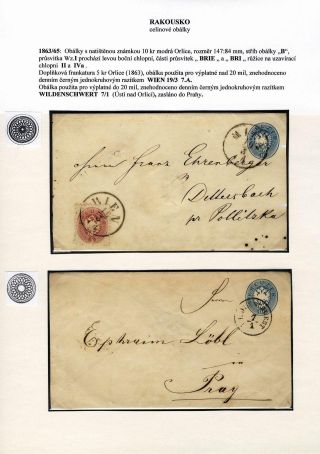 RAKOUSKO
celinové obálky
1863/65: Obálky s natištěnou známkou 10 kr modrá Orlice, rozměr 147:84 mm, střih obálky „B",
průsvitka Wz.1 prochází levou boční chlopní, části průsvitek „ BRIE „ a „ BRI „ růžice na uzavírací
chlopni II a IVa .
Doplňková frankatura 5 kr Orlice (1863), obálka použita pro výplatné nad 20 mil, znehodnoceno
denním černým jednokruhovým razítkem WIEN 19/3 7.A.
Obálka použita pro výplatné nad 20 mil, znehodnoceno denním černým jednokruhovým razítkem
WILDENSCHWERT 7/1 (Ústí nad Orlicí), zasláno do Prahy.
Herrn Franz Ehrenberger
in
WIEN
Dettersbach
pr Pollitzka
Ephraim Löbl
in
Prag